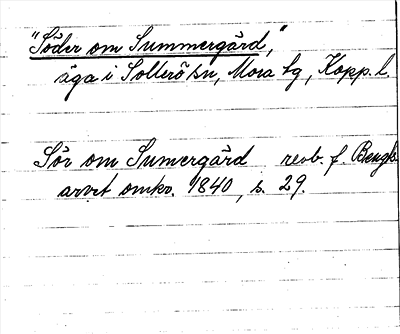 "Söder om Summergård,"
äga i Sollerö sn, Mora tg, Kopp. l.
Sör om Sumergård reob. f. Bengts
arvet omkr. 1840, s. 29.